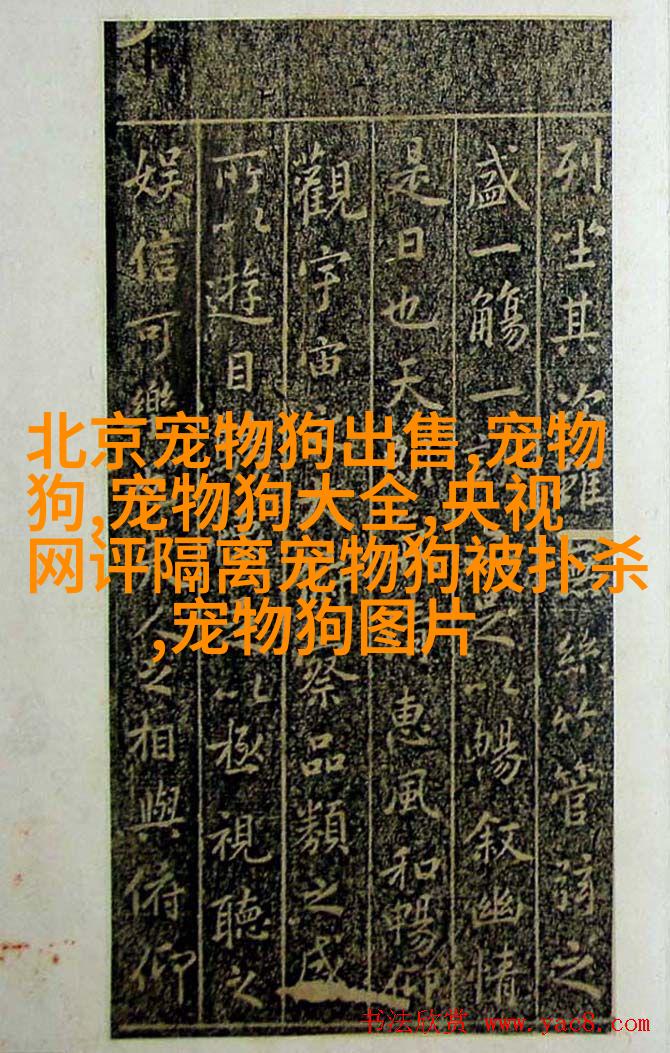 列坐其次雖無絲竹管弦之
盛一觴一之以暢叙幽情
是日也天朗惠風和暢仰
觀宇宙察品類之盛
所以遊目以極視聽之
娱信可樂人之相與俯仰
北京宠物狗出售,宠物
狗,宠物狗大全,央视
网评隔离宠物狗被扑杀
,宠物狗图片
书法欣赏 www.yac8.com